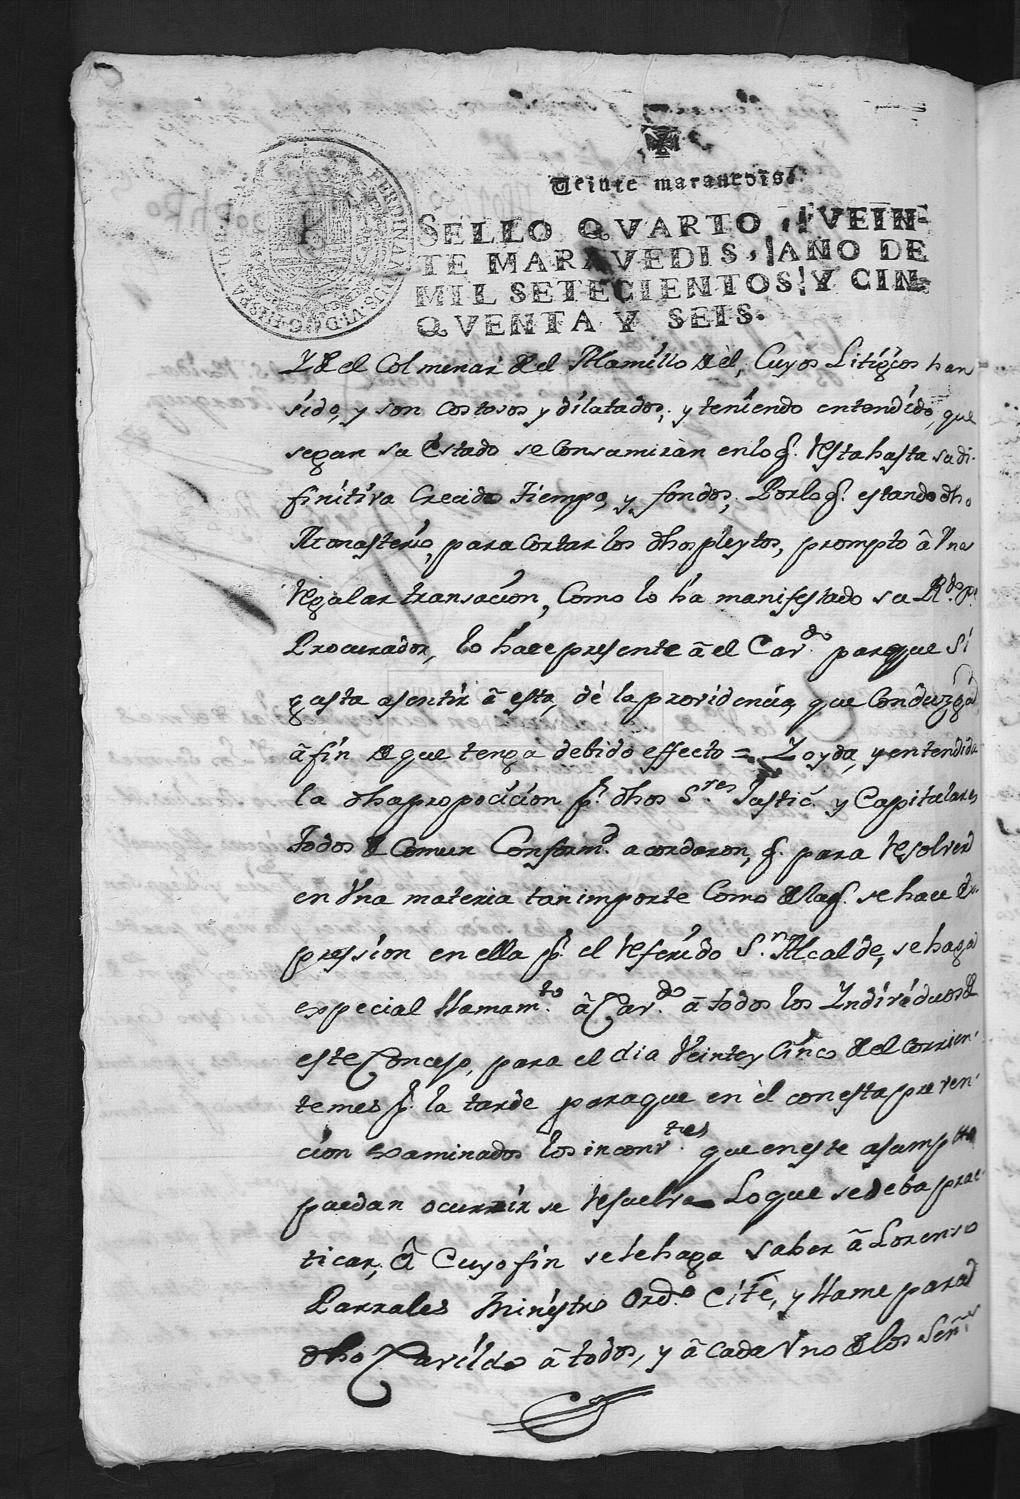 Veinte maravedis.
SELLO QVARTO, VEIN-
TE MARAVEDIS, AÑO DE
MIL SETECIENTOS Y CIN-
QVENTA Y SEIS.
FERDINANDUS VI D G HISPANIAR
Y de el Colmenar de el Alamillo de èl, Cuyos Litigios han
sido, y son costosos y dilatados; y teniendo entendido, que
segun su estado se Consumiràn en lo q.e resta hasta su di-
finitiva Crecido tiempo, y fondos, Por lo q.e estando dho
Monasterio, para cortar los dhos pleytos, prompto â Vna
regular transacion, Como lo ha manifestado su R.do p.e
Procurador, lo hace presente â el Cav.do para que si
gusta asentir â esta, dè la providencia, que Conduzga
â fin de que tenga debido effecto = Y oyda, y entendida
la dha propocicion p.r dhos S.res Justic.a y Capitulares
todos de Comun Conform.d acordaron, q.e para resolver
en Vna materia tan importe Como de la q.e se hace ex-
presion en ella p.r el referido S.r Alcalde, se haga
especial llamam.to â Cav.do â todos los Yndividuos de
este Concejo, para el dia Veinte y Cinco de el corrien-
te mes p.r la tarde para que en èl con esta preven-
cion examinados los inconv.tes que en este asumpto
puedan ocurrir se resuelva Lo que se deba prac-
ticar, â Cuyo fin se le haga saber â Lorenso
Parrales Ministro Ord.o Cite, y llame para
dho Cavildo â todos, y â cada Vno de los Señ.res